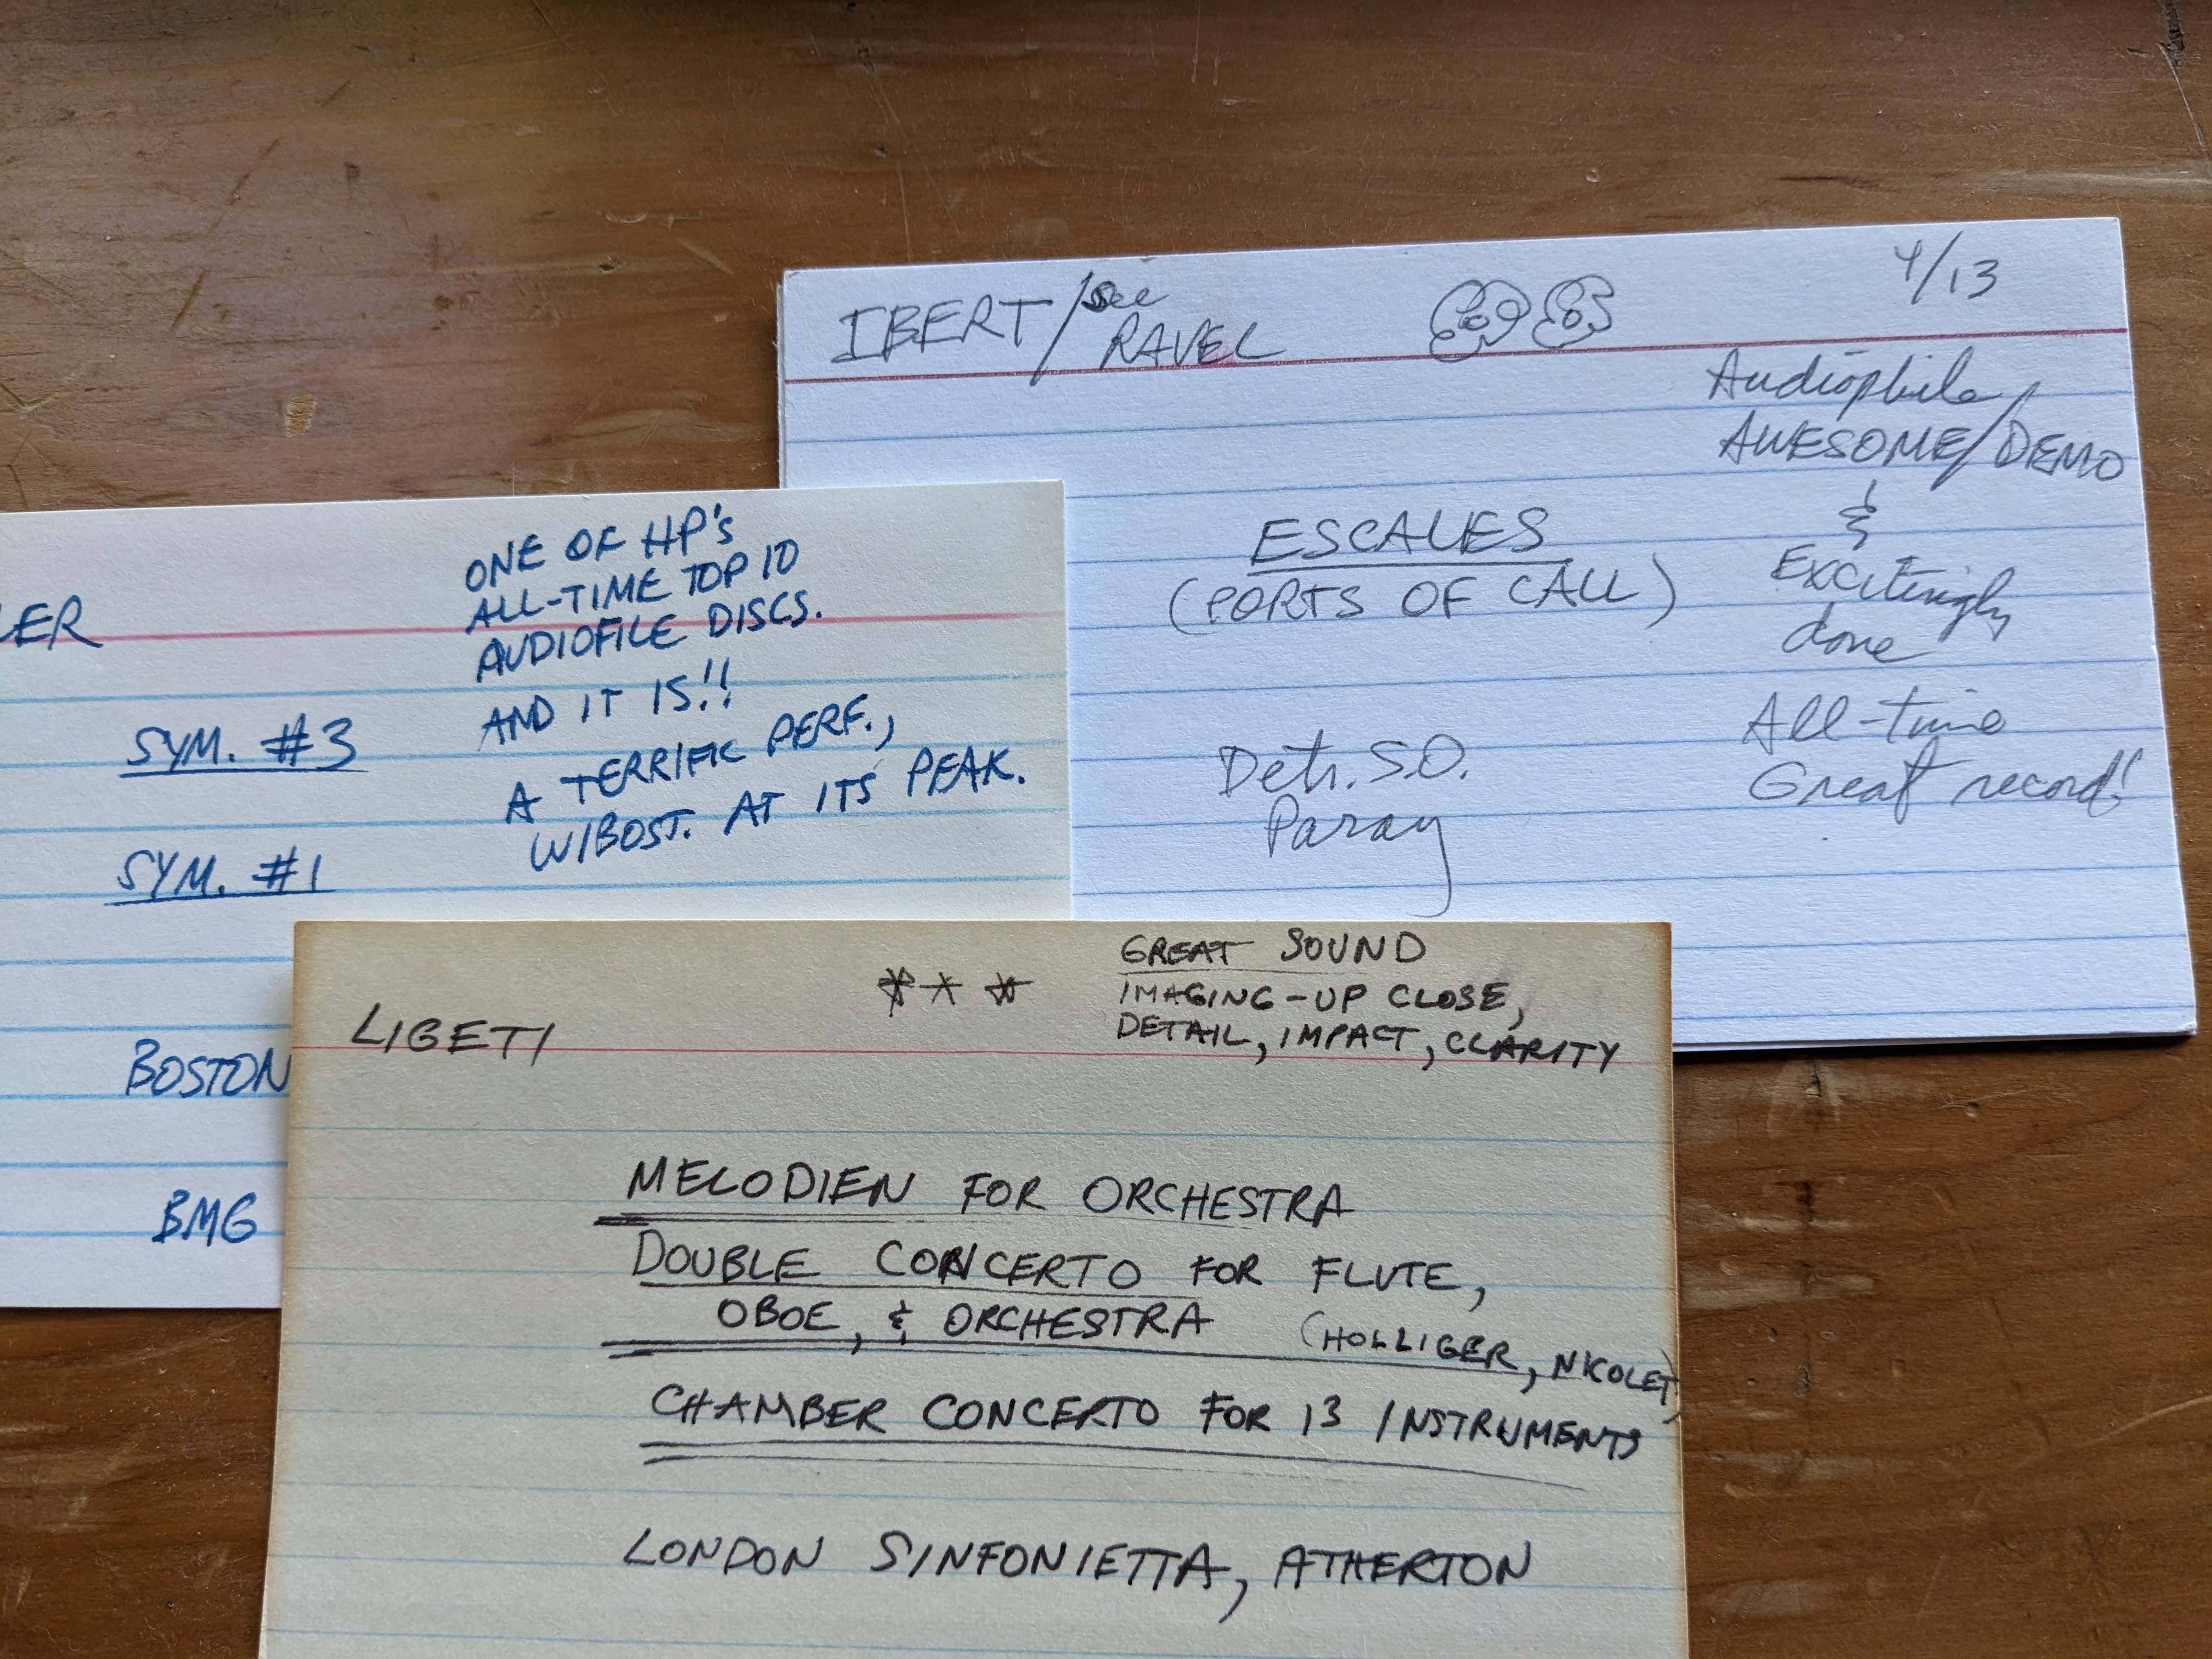 IBERT/see RAVEL
4/13
Audiophile
AWESOME/DEMO
&
Excitingly
done
All-time
Great record!
ESCALES
(PORTS OF CALL)
Detr. S.O.
Paray
LER
ONE OF HP'S
ALL-TIME TOP 10
AUDIOFILE DISCS.
AND IT IS!!
A TERRIFIC PERF.,
W/BOST. AT ITS PEAK.
SYM. #3
SYM. #1
BOSTON
BMG
LIGETI
***
GREAT SOUND
IMAGING-UP CLOSE,
DETAIL, IMPACT, CLARITY
MELODIEN FOR ORCHESTRA
DOUBLE CONCERTO FOR FLUTE,
OBOE, & ORCHESTRA (HOLLIGER, NICOLET)
CHAMBER CONCERTO FOR 13 INSTRUMENTS
LONDON SINFONIETTA, ATHERTON